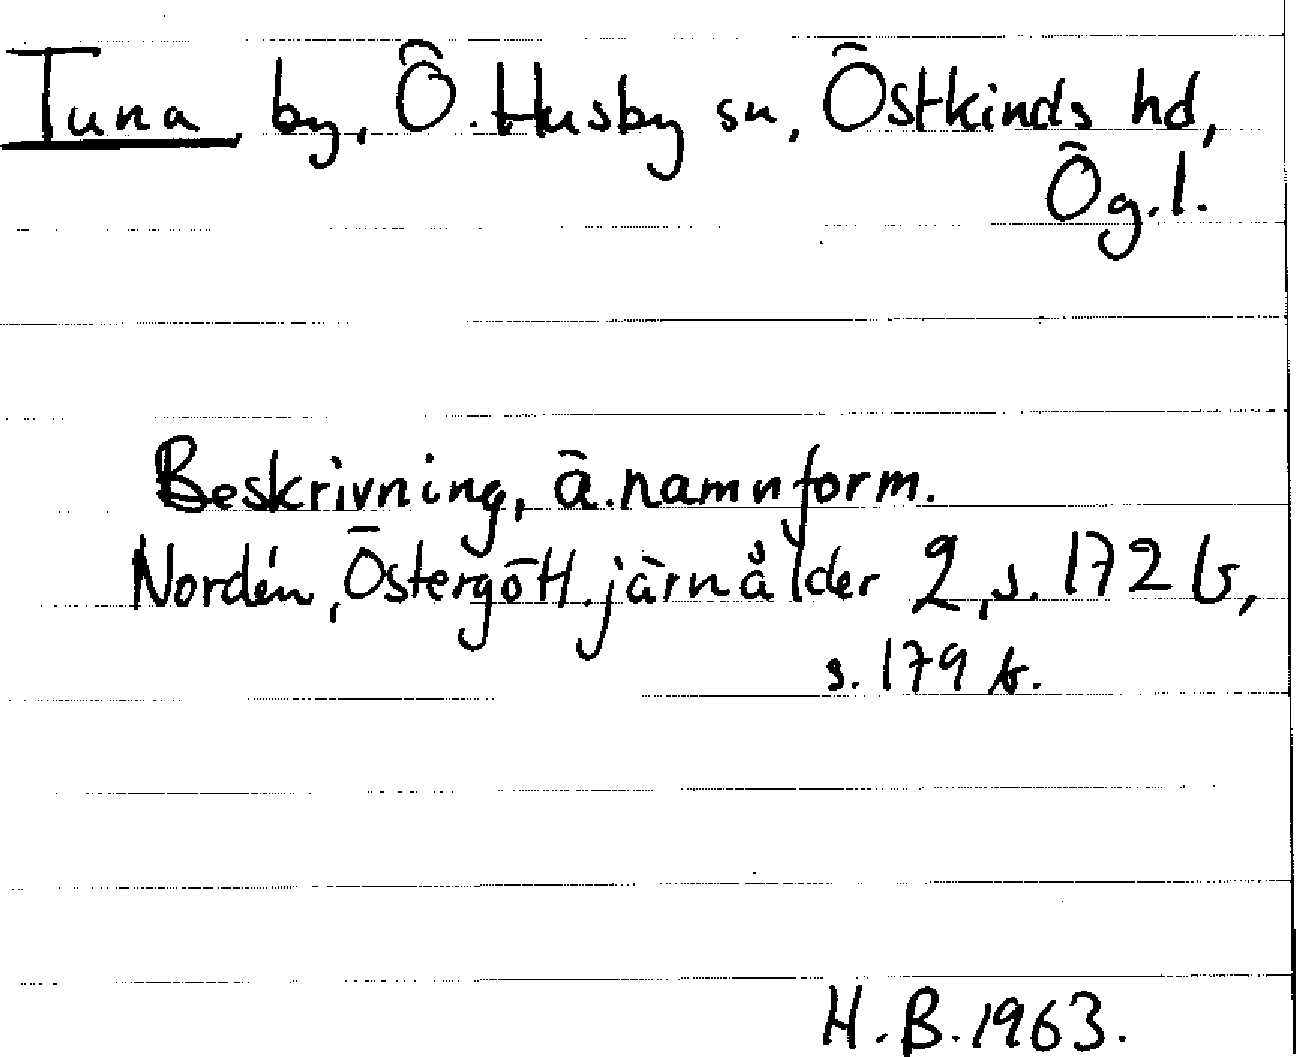 Tuna, by, Ö. Husby sn, Östkinds hd,
Ög. l.
Beskrivning, ä. namnform.
Nordén, Östergötl. järnålder 2, s. 172 b,
s. 179 b.
H. B. 1963.